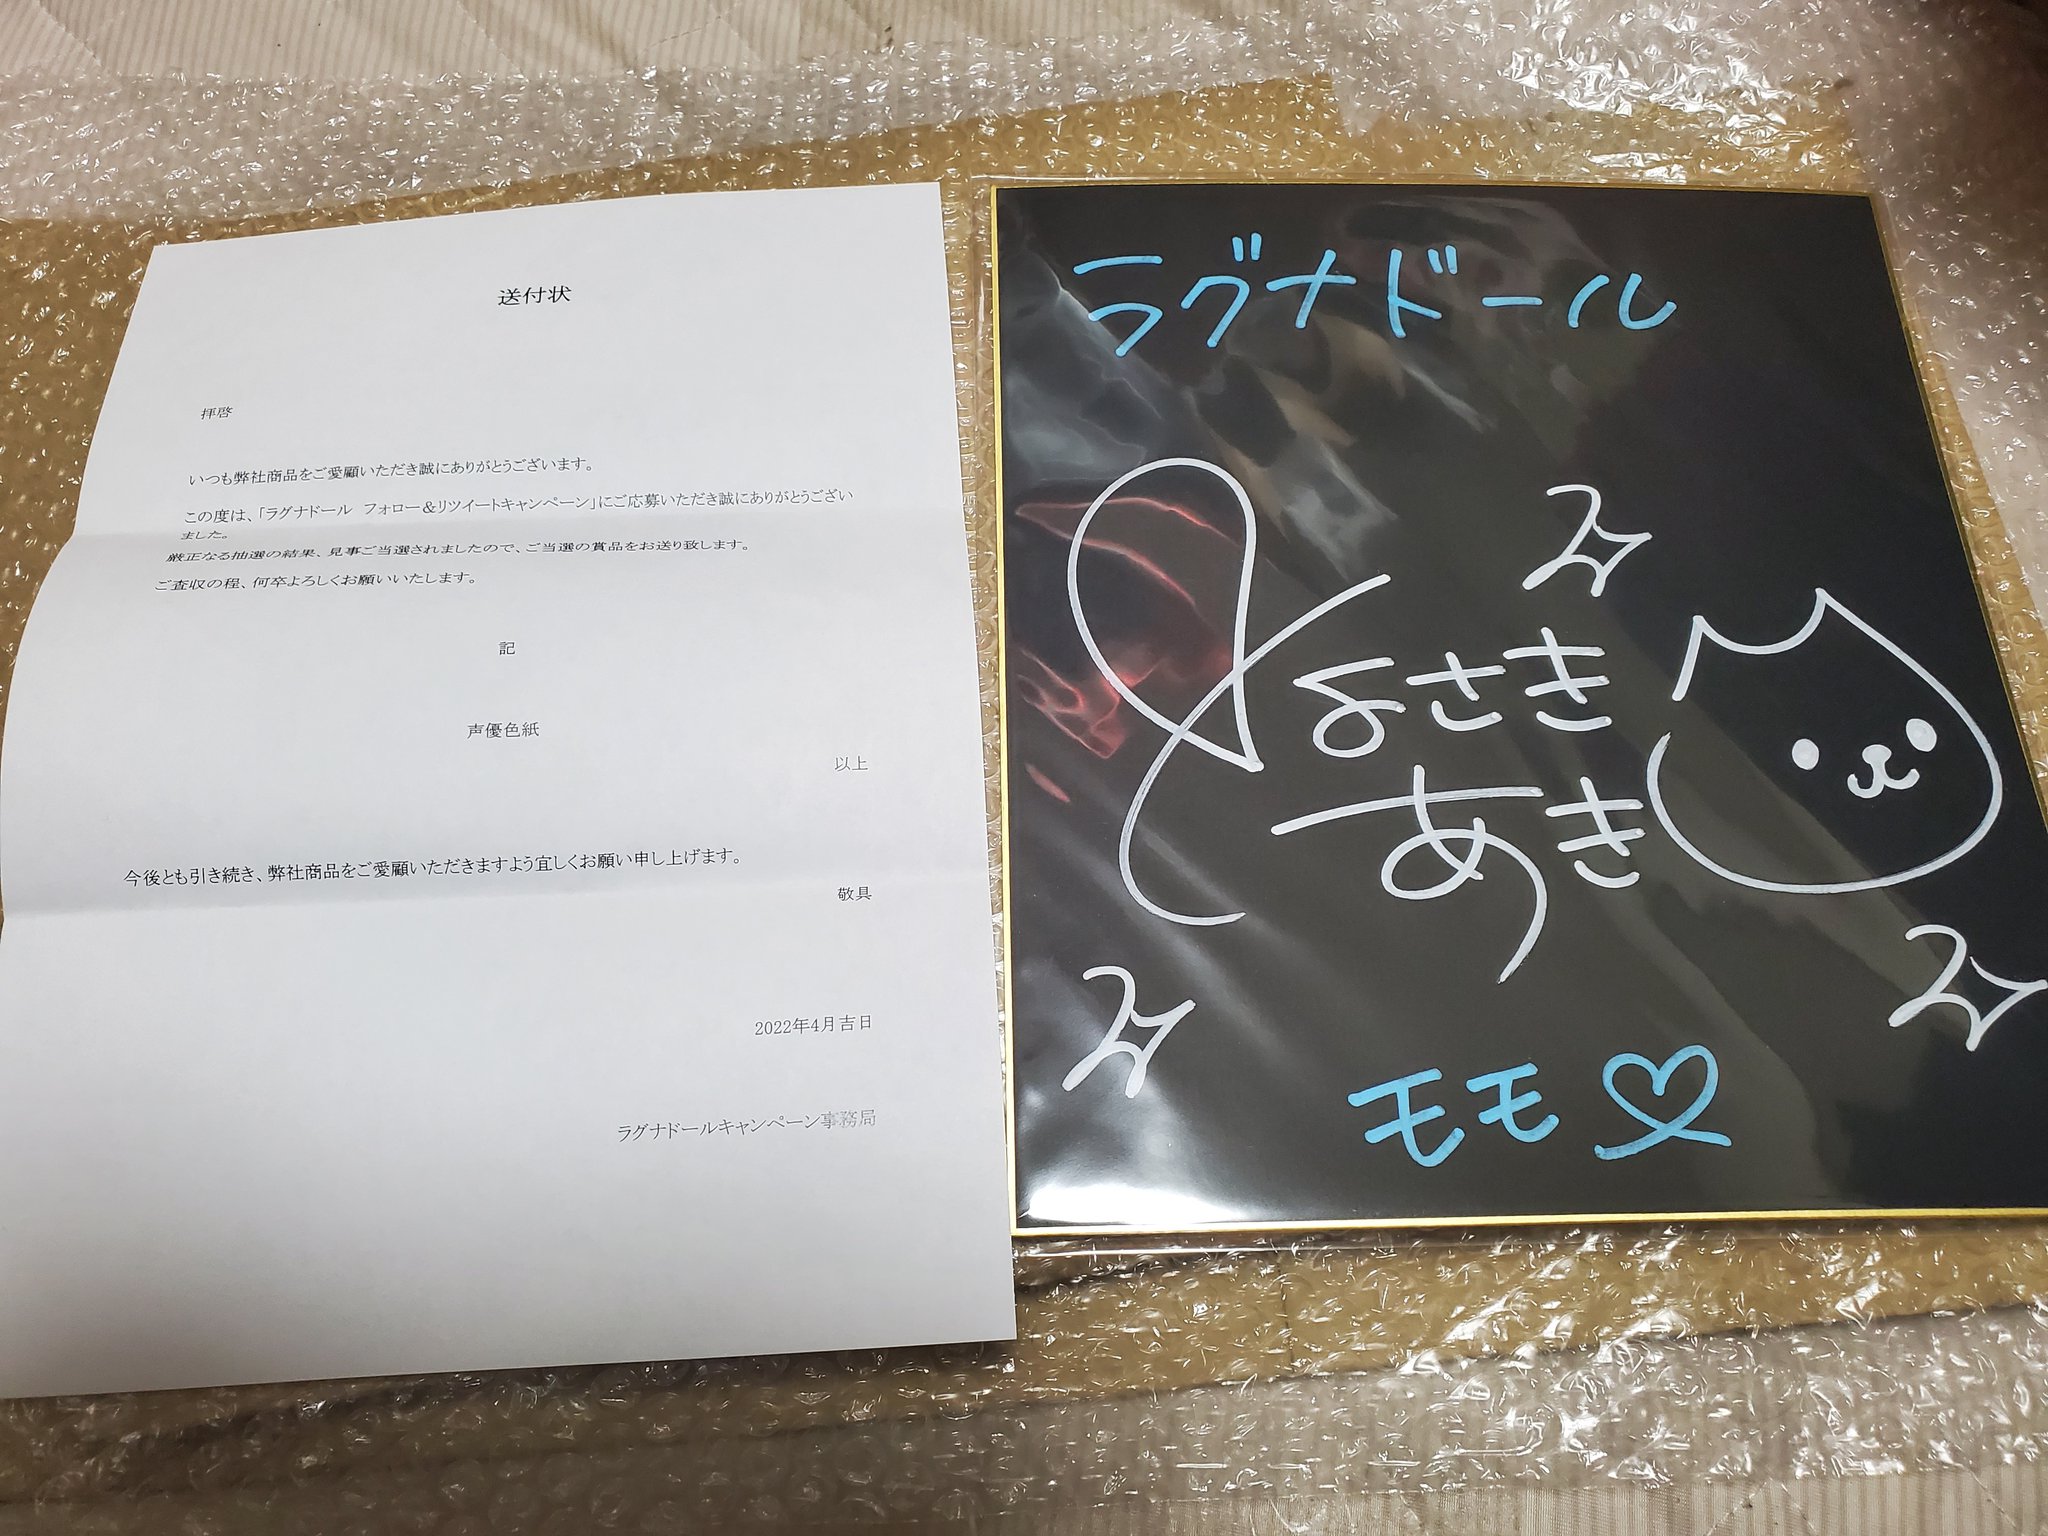 送付状
拝啓
いつも弊社商品をご愛顧いただき誠にありがとうございます。
この度は、「ラグナドール　フォロー＆リツイートキャンペーン」にご応募いただき誠にありがとうござい
ました。
厳正なる抽選の結果、見事ご当選されましたので、ご当選の賞品をお送り致します。
ご査収の程、何卒よろしくお願いいたします。
記
声優色紙
以上
今後とも引き続き、弊社商品をご愛顧いただきますよう宜しくお願い申し上げます。
敬具
2022年4月吉日
ラグナドールキャンペーン事務局
ラグナドール
よさき
あき
モモ♡